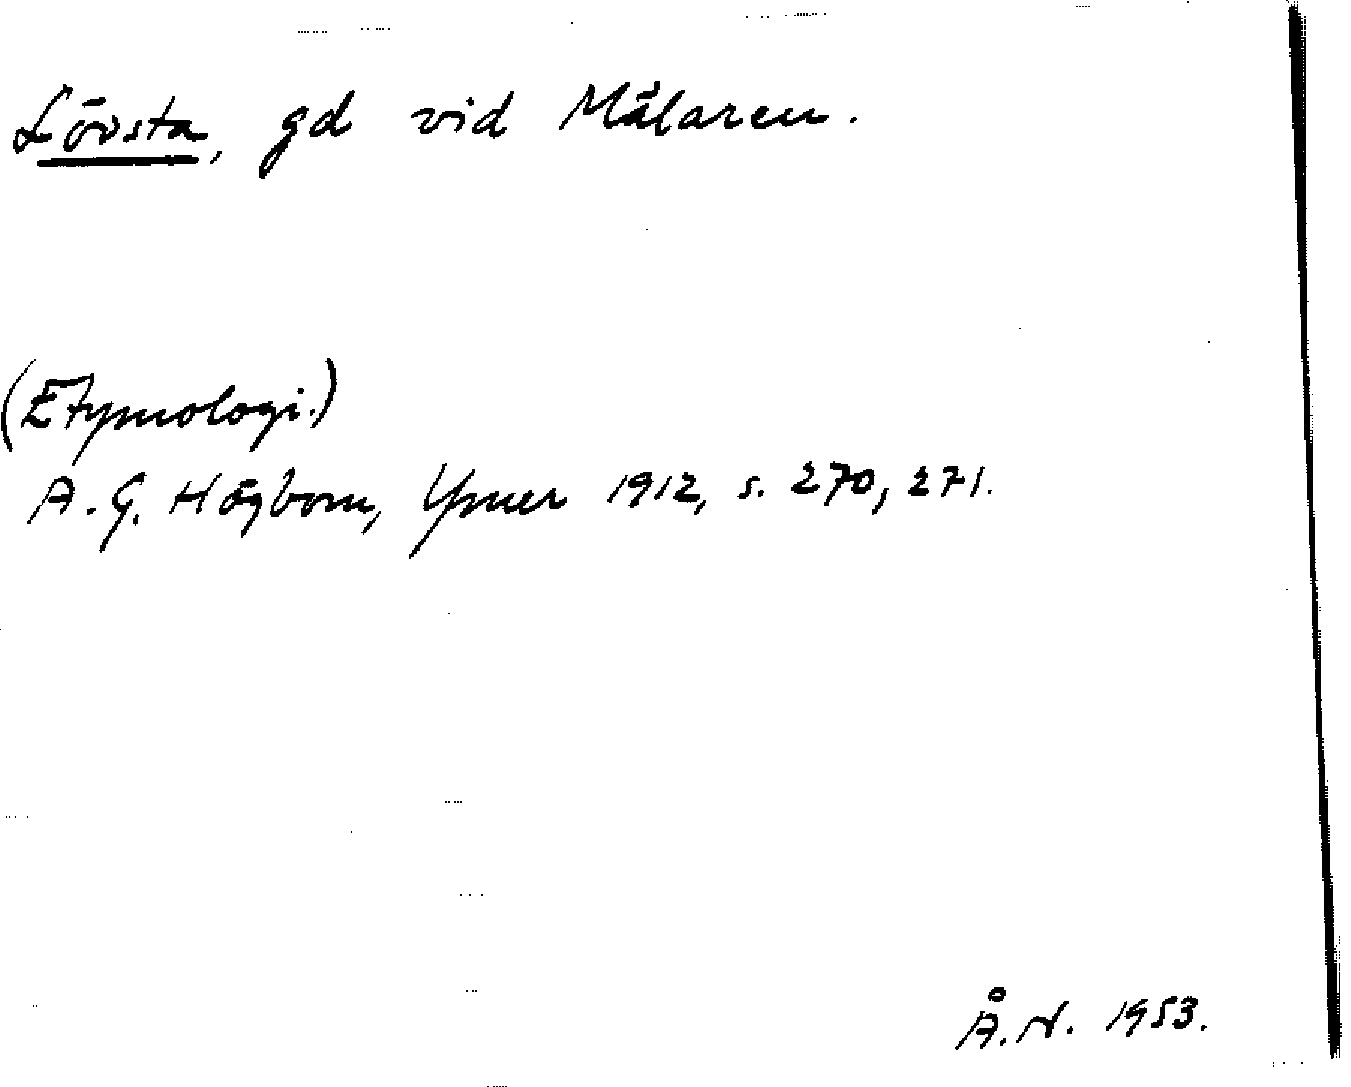 Lövsta, gd vid Mälaren.
(Etymologi.)
A. G. Högbom, Ymer 1912, s. 270, 271.
Å. N. 1953.